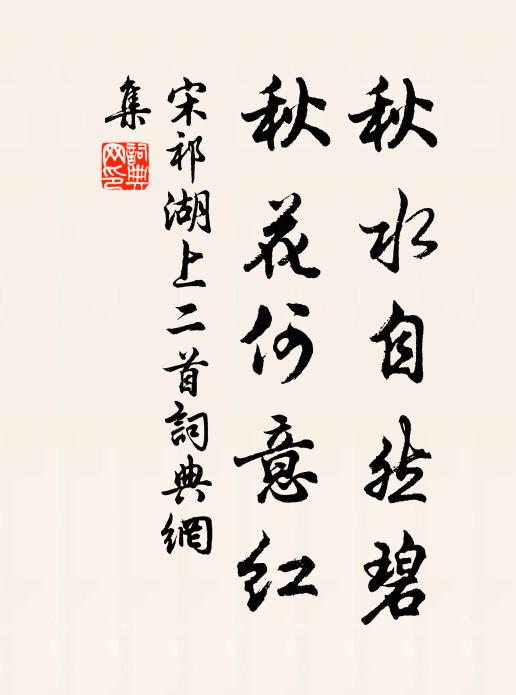 秋水自然碧
秋花何意紅
宋祁湖上二首詞典網
集
詞典網印